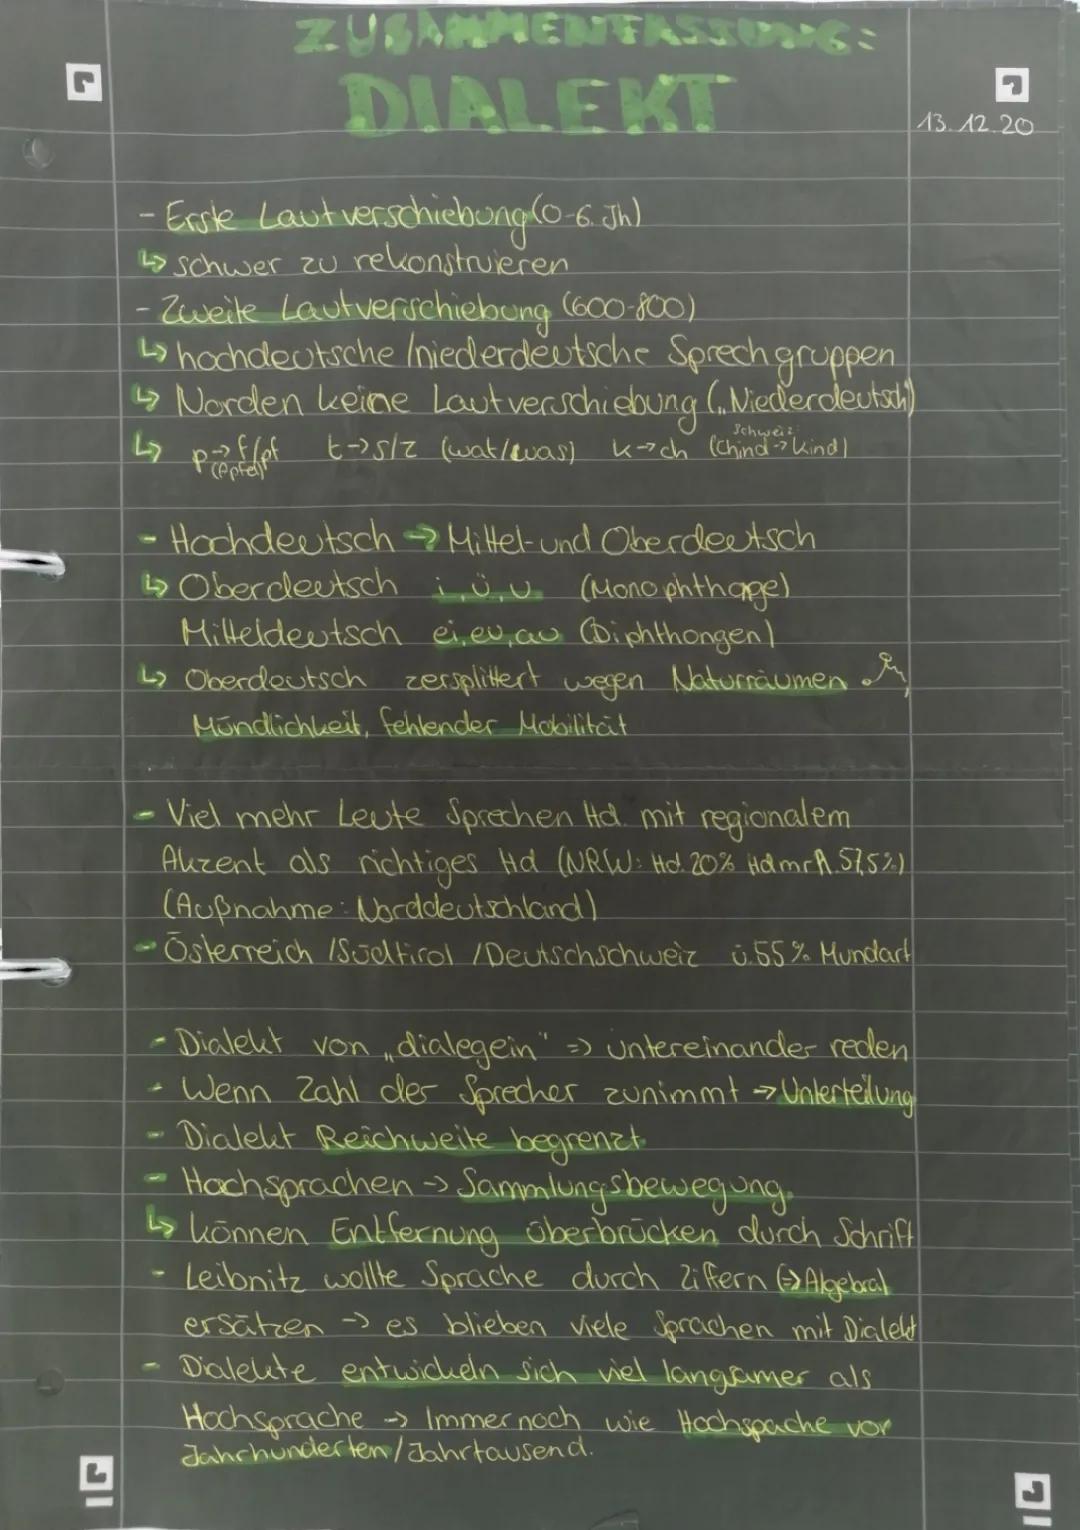 ZUSAMMENFASSUNG:
DIALEKT
13.12.20
- Erste Lautverschiebung (0-6. Jh)
↳ schwer zu rekonstruieren
- Zweite Lautverschiebung (600-800)
↳ hochdeutsche /niederdeutsche Sprechgruppen
↳ Norden keine Lautverschiebung („Niederdeutsch")
↳ p→f/pf (Apfel) t→s/z (wat/was) k→ch (Schweiz: Chind→Kind)
- Hochdeutsch → Mittel- und Oberdeutsch
↳ Oberdeutsch i, ü, u (Monophthonge)
Mitteldeutsch ei, eu, au (Diphthongen)
↳ Oberdeutsch zersplittert wegen Naturräumen,
Mündlichkeit, fehlender Mobilität
- Viel mehr Leute Sprechen Hd. mit regionalem
Akzent als richtiges Hd (NRW: Hd. 20% Hd mrA. 57,5%)
(Außnahme: Norddeutschland)
- Österreich /Südtirol /Deutschschweiz ü. 55% Mundart
- Dialekt von „dialegein" => untereinander reden
- Wenn Zahl der Sprecher zunimmt → Unterteilung
- Dialekt Reichweite begrenzt
- Hochsprachen → Sammlungsbewegung
↳ können Entfernung überbrücken durch Schrift
- Leibnitz wollte Sprache durch Ziffern (=> Algebra)
ersätzen → es blieben viele Sprachen mit Dialekt
- Dialekte entwickeln sich viel langsamer als
Hochsprache → Immer noch wie Hochspache vor
Jahrhunderten/Jahrtausend.